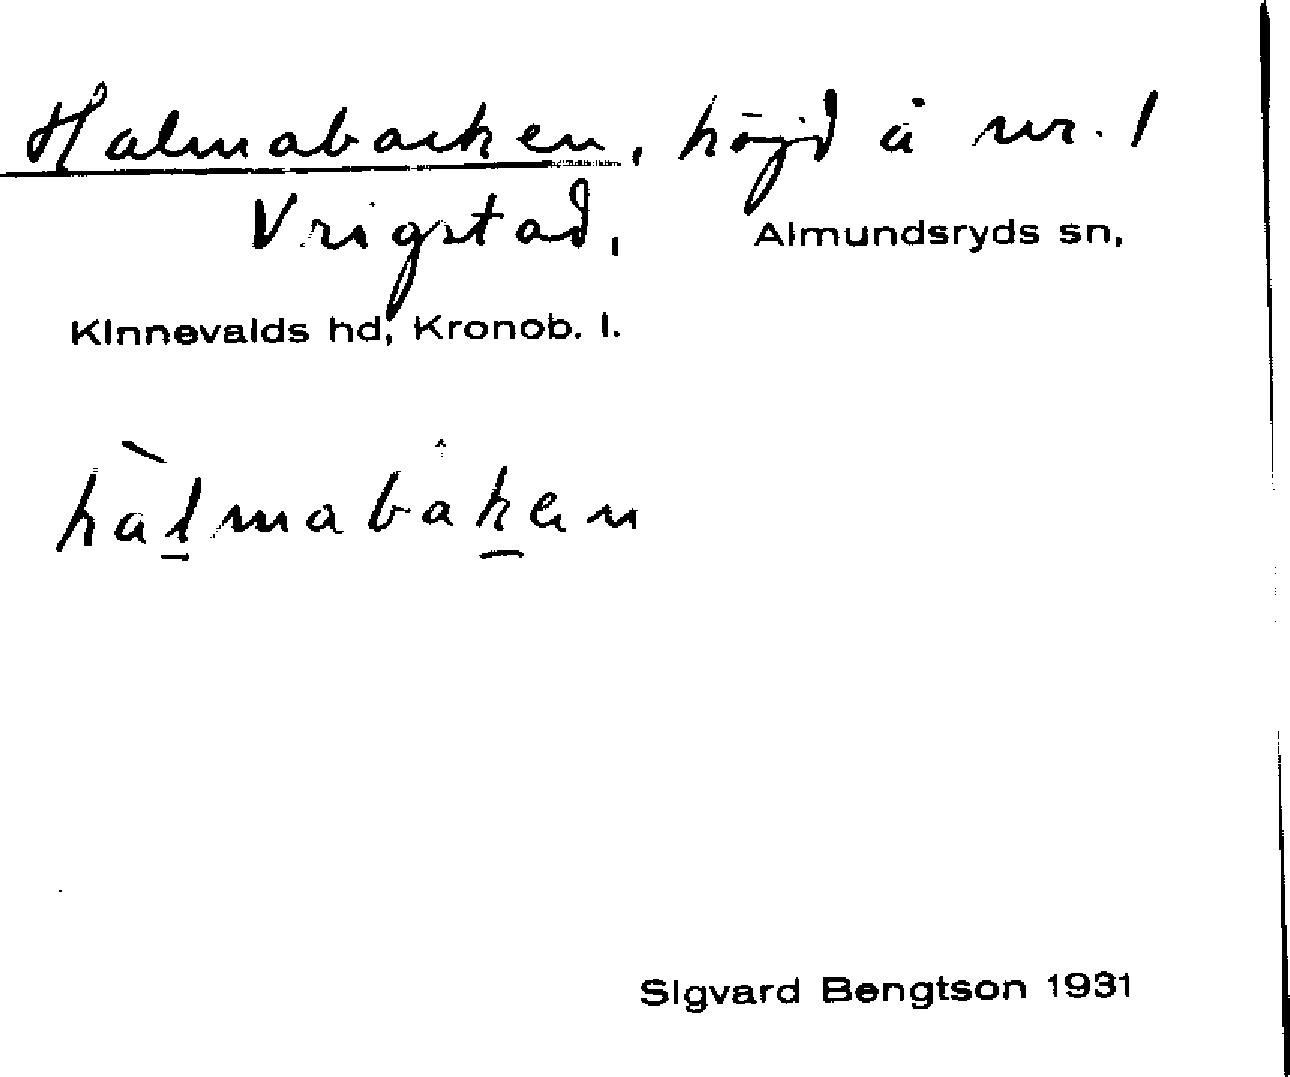 Halmabacken, höjd å nr. 1
Vrigstad, Almundsryds sn,
Kinnevalds hd, Kronob. l.
hàl̠mabâk̠en
Sigvard Bengtson 1931